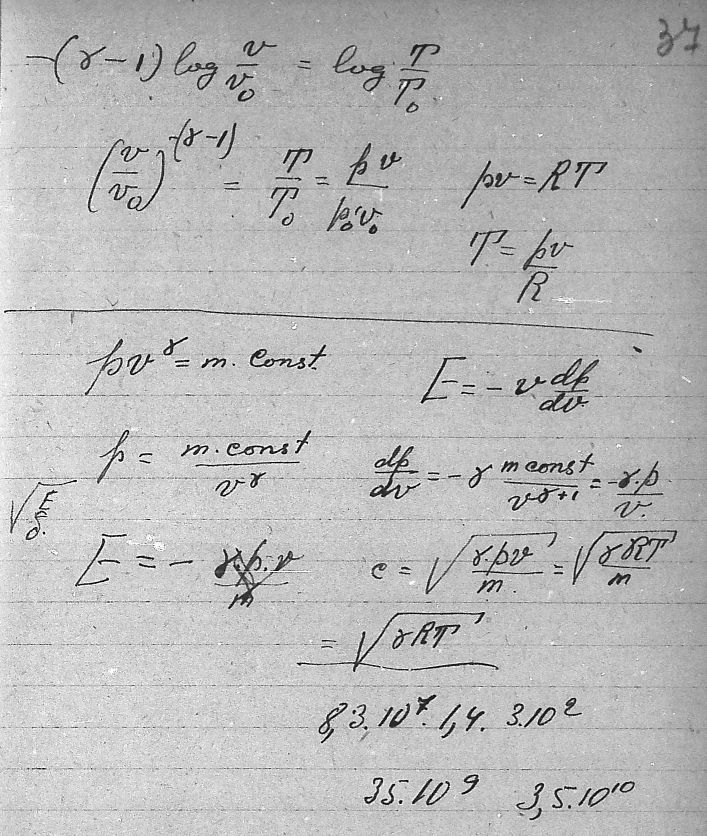 37
-(γ-1) log v/v₀ = log T/T₀
(v/v₀)^-(γ-1) = T/T₀ = pv/p₀v₀   pv = RT
T = pv/R
pv^γ = m. Const.   E = - v dp/dv
p = m. const/v^γ   dp/dv = -γ m const/v^γ+1 = -γ.p/v.
√E/δ.
E = - γ.p.v/m   c = √γ.pv/m. = √γRT/m
= √γRT
8,3.10⁷. 1,4. 3.10²
35.10⁹   3,5.10¹⁰